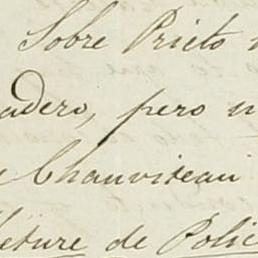 Sobre Prieto
adero, pero
Chauviteau
feture de Polic